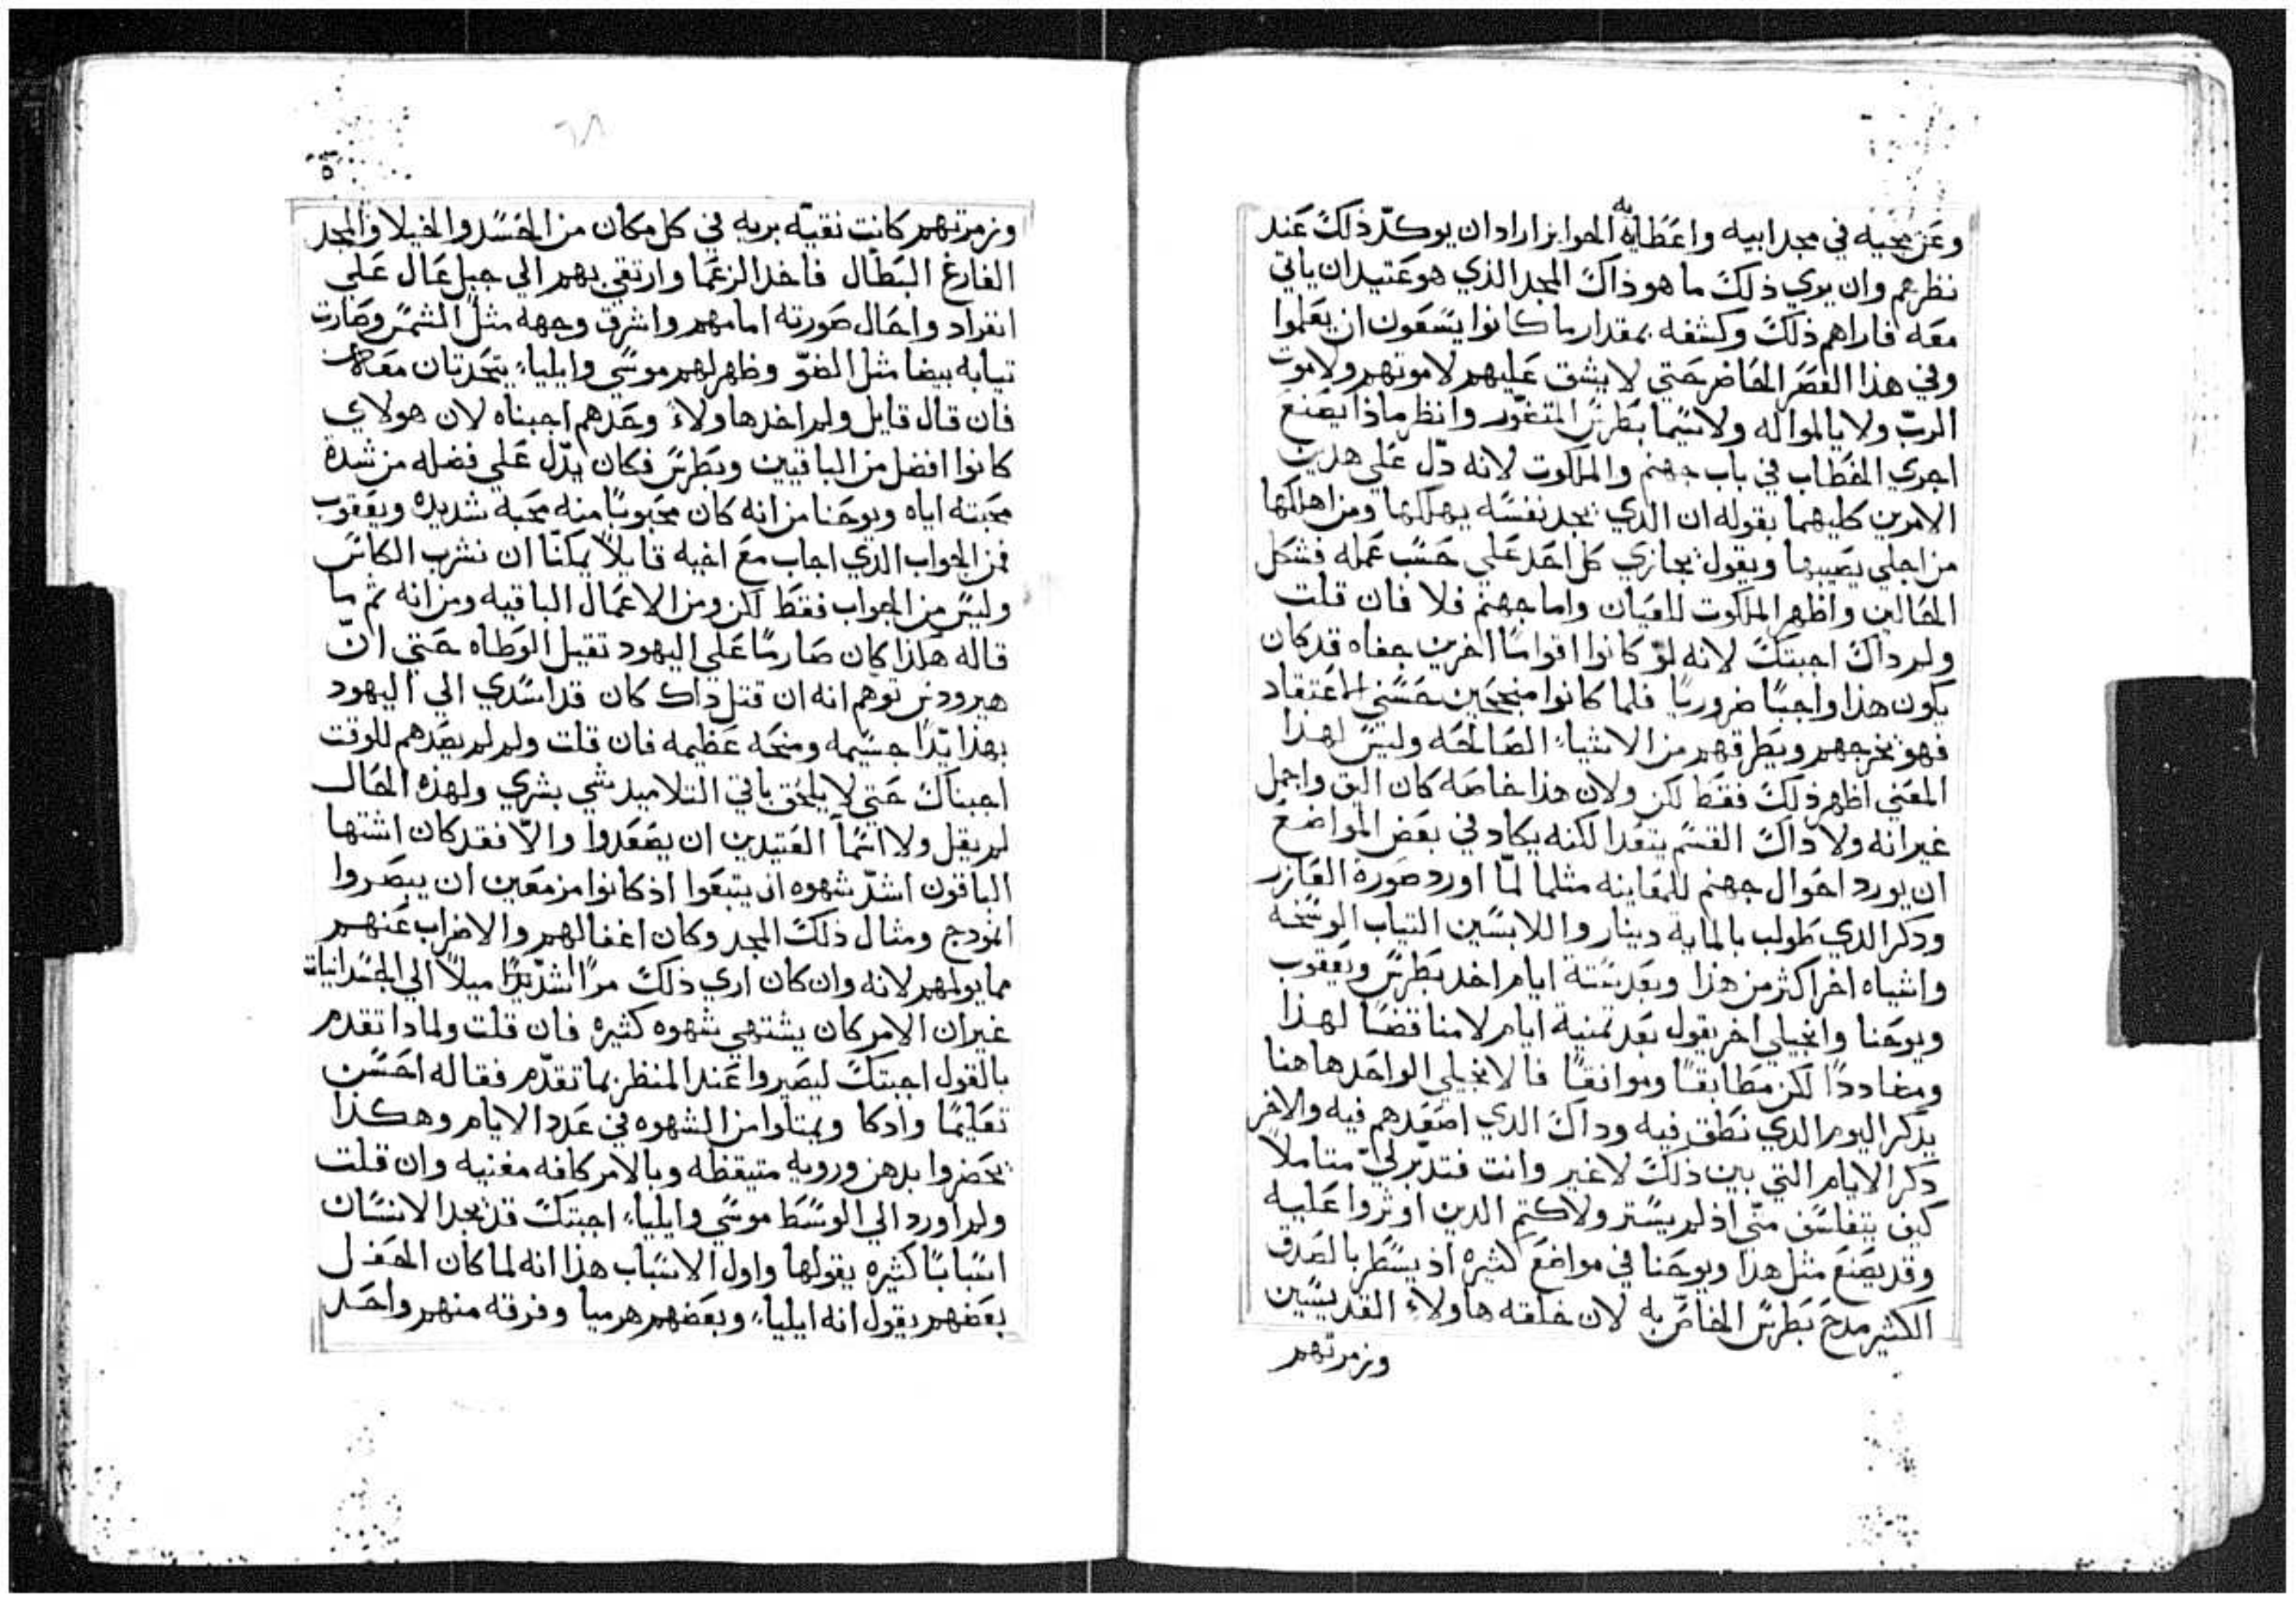 وعن مجيه في مجد ابيه واعطايه الجوايز اراد ان يوكد ذلك عند
نظرهم وان يري ذلك ما هو ذاك المجد الذي هو عتيد ان ياتي
معه فاراهم ذلك وكشفه بمقدار ما كانوا يسعون ان يعلموا
وفي هذا العصر الحاضر حتي لا يشق عليهم لا موتهم ولا موت
الربّ ولا يالموا له ولا سيما بطرس المتغوّر وانظر ماذا يصنع
اجري الخطاب في باب جهنم والملكوت لانه دلّ علي هدين
الامرين كليهما بقوله ان الدي يجد نفسه يهلكها ومن اهلكها
من اجلي يصيبها ويقول يجازي كل احد علي حسب عمله فشكل
الحالين واظهر الملكوت للعيان واما جهنم فلا فان قلت
ولم داك اجبتك لانه لوّ كانوا اقواما اخرين جفاه قد كان
يكون هدا واجبًا ضروريا فلما كانوا منجحين حسني الاعتقاد
فهو يخرجهم ويطرقهم من الاشياء الصالحه وليس لهدا
المعني اظهر ذلك فقط لكن ولان هدا خاصه كان اليق واجمل
غير انه ولا داك القسم يتعدا لكنه يكاد في بعض المواضع
ان يورد احوال جهنم للمعاينه مثلما لمّا اورد صورة العازر
ودكر الدي طولب بالمايه دينار واللابسين التياب الوسخه
واشياه اخر اكثر من هذا وبعد ستة ايام اخد بطرس ويعقوب
ويوحنا وانجيلي اخر يقول بعد تمنية ايام لا مناقضا لهذا
ومضاددًا لكن مطابقًا وموافقًا فالانجيلي الواحد هاهنا
يذكر اليوم الدي نطق فيه وداك الدي اصعدهم فيه والاخر
دكر الايام التي بين ذلك لا غير وانت فتدبّر لي متاملًا
كيف يتفلسف متّي اذ لم يستر ولا كتم الدين اوثروا عليه
وقد يصنع مثل هدا ويوحنا في مواضع كثيره اذ يسطر بالصدق
الكثير مدح بطرس الخاصّ به لان خلقه هاولاء القديسين
وزمرتهم
وزمرتهم كانت نقيّه بريه في كل مكان من الحسد والخيلا والمجد
الفارغ البطال فاخد الزعما وارتقي بهم الي جبل عال علي
انفراد واحال صورته امامهم واشرق وجهه مثل الشمس وصارت
تيابه بيضا مثل الضوّ وظهر لهم موسي وايلياء يتحدتان معه
فان قال قايل ولم اخد هاولاء وحدهم اجبناه لان هولاي
كانوا افضل من الباقيين وبطرس فكان يدّل علي فضله من شدة
محبته اياه ويوحنا من انه كان محبوبًا منه محبه شديده ويعقوب
فمن الجواب الذي اجاب مع اخيه قايلًا يمكنّا ان نشرب الكاس
وليس من الجواب فقط لكن ومن الاعمال الباقيه ومن انه تم ما
قاله هكذا كان صارمًا علي اليهود تقيل الوطاه حتي انّ
هيرودس توهم انه ان قتل داك كان قد اسدي الي اليهود
بهذا يدًا جسيمه ومنحه عظيمه فان قلت ولم لم يصعدهم للوقت
اجبناك حتي لا يلحق باقي التلاميد شي بشري ولهذه الحال
لم يقل ولا اسما العتيدين ان يصعدوا والّا فقد كان اشتها
الباقون اشدّ شهوه ان يتبعوا اذ كانوا مزمعين ان يبصروا
انمودج ومثال ذلك المجد وكان اغفالهم والاضراب عنهم
مما يولمهم لانه وان كان اري ذلك مرًا اشدّ ميلًا الي الجسدانيات
غير ان الامر كان يشتهي شهوه كثيره فان قلت ولمادا تقدم
بالقول اجبتك ليصيروا عند المنظر بما تقدّم فقاله احسن
تعليمًا وادكا ويمتلوا من الشهوه في عدد الايام وهكذا
يحضروا بدهن ورويه متيقظه وبالامر كافه مغنيه وان قلت
ولم اورد الي الوسط موسي وايلياء اجبتك قد يجد الانسان
اسبابًا كثيره يقولها واول الاسباب هذا انه لما كان المحفل
بعضهم يقول انه ايلياء وبعضهم هرميا وفرقه منهم واحد